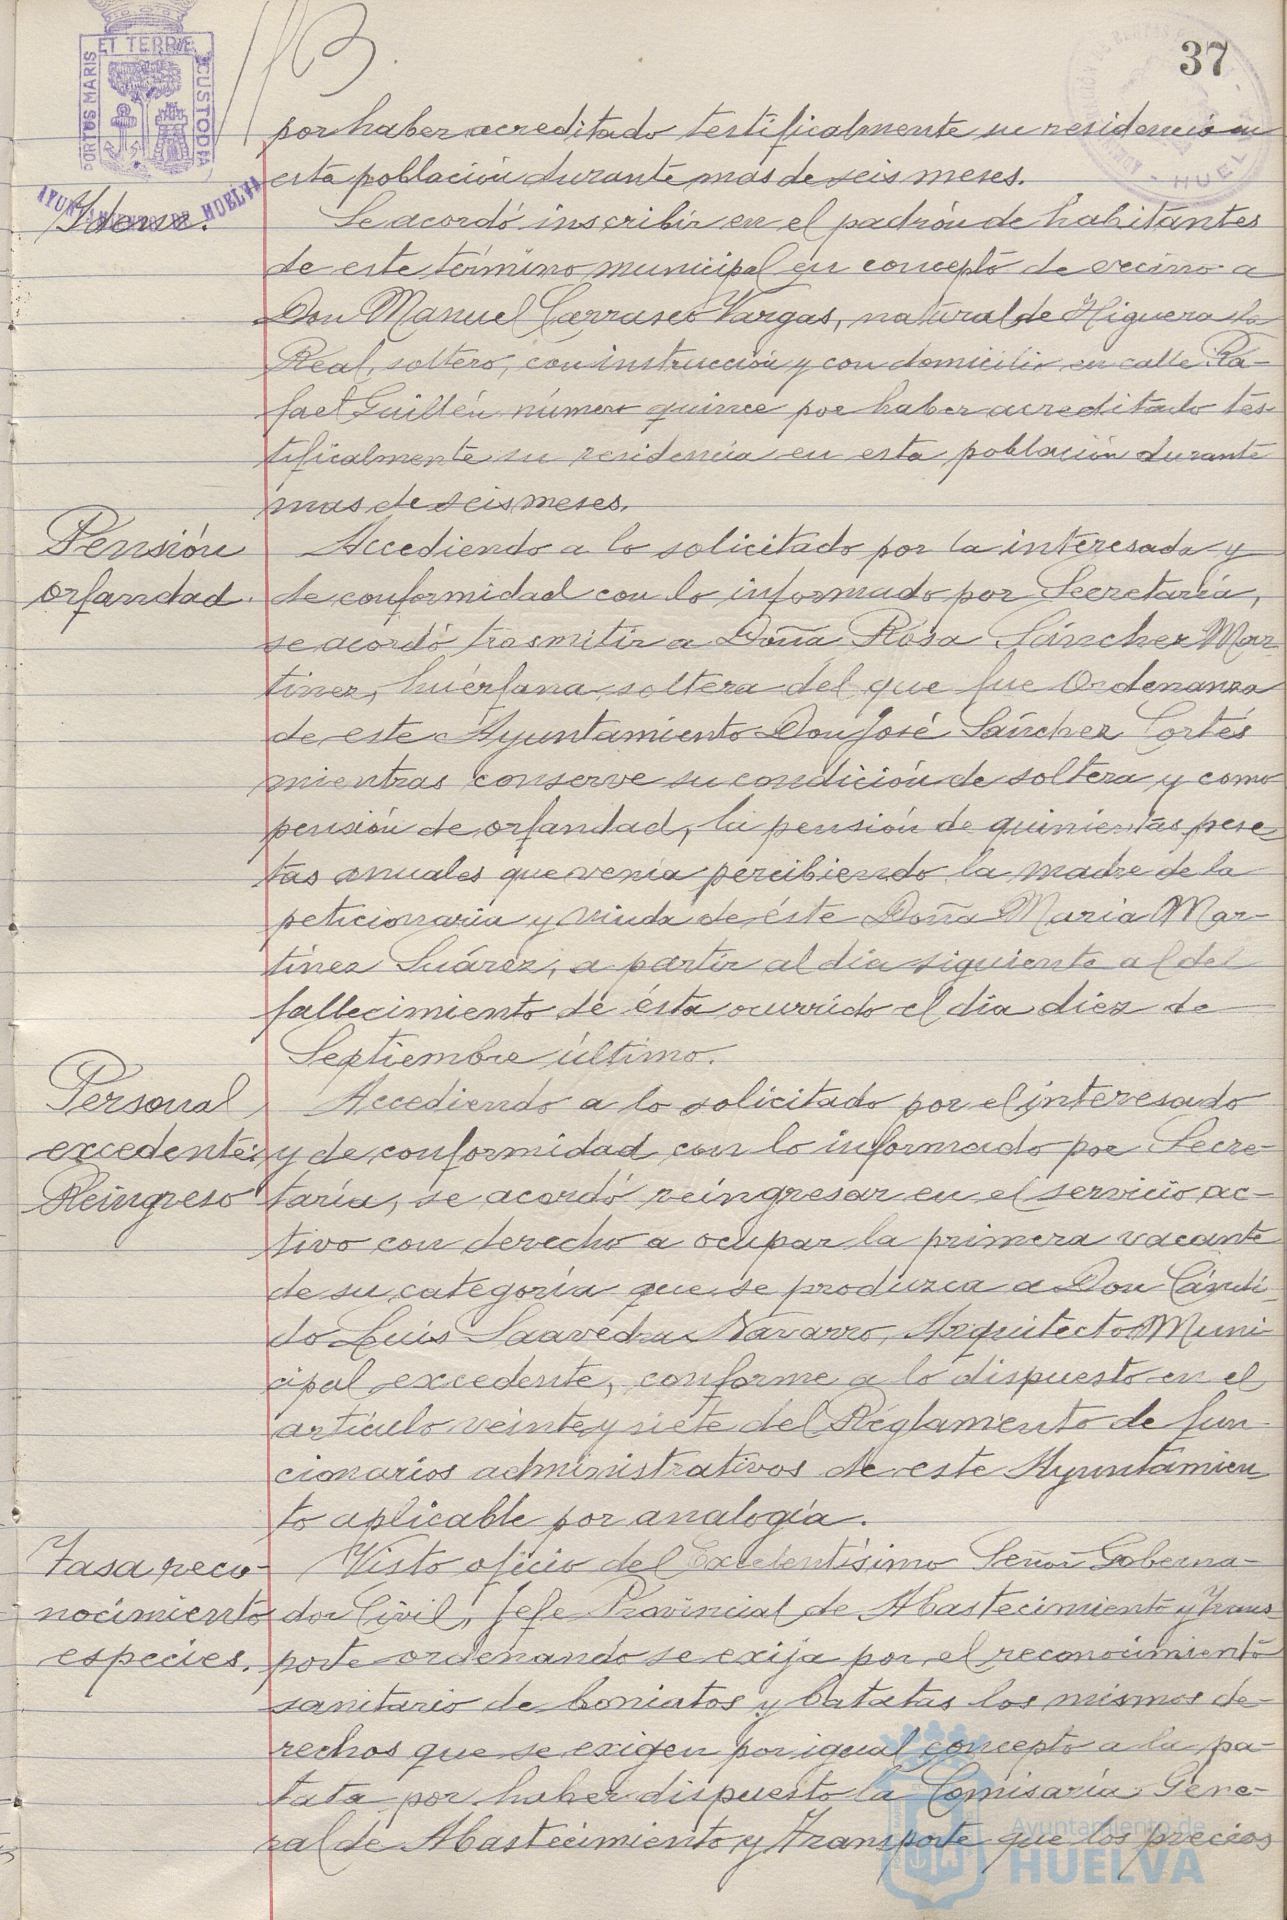 37
PORTUS MARIS ET TERRÆ CUSTODIA
AYUNTAMIENTO DE HUELVA
HUELVA
por haber acreditado testificalmente su residencia en
esta población durante mas de seis meses.
Idem.
Se acordó inscribir en el padrón de habitantes
de este término municipal en concepto de vecino a
Don Manuel Carrasco Vargas, natural de Higuera la
Real, soltero, con instrucción y con domicilio en calle Ra-
fael Guillén número quince por haber acreditado tes-
tificalmente su residencia en esta población durante
mas de seis meses.
Pensión
orfandad.
Accediendo a lo solicitado por la interesada y
de conformidad con lo informado por Secretaría,
se acordó trasmitir a Doña Rosa Sánchez Mar-
tinez, huérfana soltera del que fue Ordenanza
de este Ayuntamiento Don José Sánchez Cortés
mientras conserve su condición de soltera y como
pensión de orfandad, la pensión de quinientas pese-
tas anuales que venía percibiendo la madre de la
peticionaria y viuda de éste Doña María Mar-
tínez Suárez, a partir al día siguiente al del
fallecimiento de ésta ocurrido el día diez de
Septiembre último.
Personal
excedente:
Reingreso
Accediendo a lo solicitado por el interesado
y de conformidad con lo informado por Secre-
taría, se acordó reingresar en el servicio ac-
tivo con derecho a ocupar la primera vacante
de su categoría que se produzca a Don Cándi-
do Luis Saavedra Navarro, Arquitecto Muni-
cipal excedente, conforme a lo dispuesto en el
artículo veinte y siete del Reglamento de fun-
cionarios administrativos de este Ayuntamien-
to aplicable por analogía.
Tasa reco-
nocimiento
especies.
Visto oficio del Excelentísimo Señor Goberna-
dor Civil, Jefe Provincial de Abastecimiento y Trans-
porte ordenando se exija por el reconocimiento
sanitario de boniatos y batatas los mismos de-
rechos que se exigen por igual concepto a la pa-
tata por haber dispuesto la Comisaría Gene-
ral de Abastecimiento y Transporte que los precios
Ayuntamiento de
HUELVA